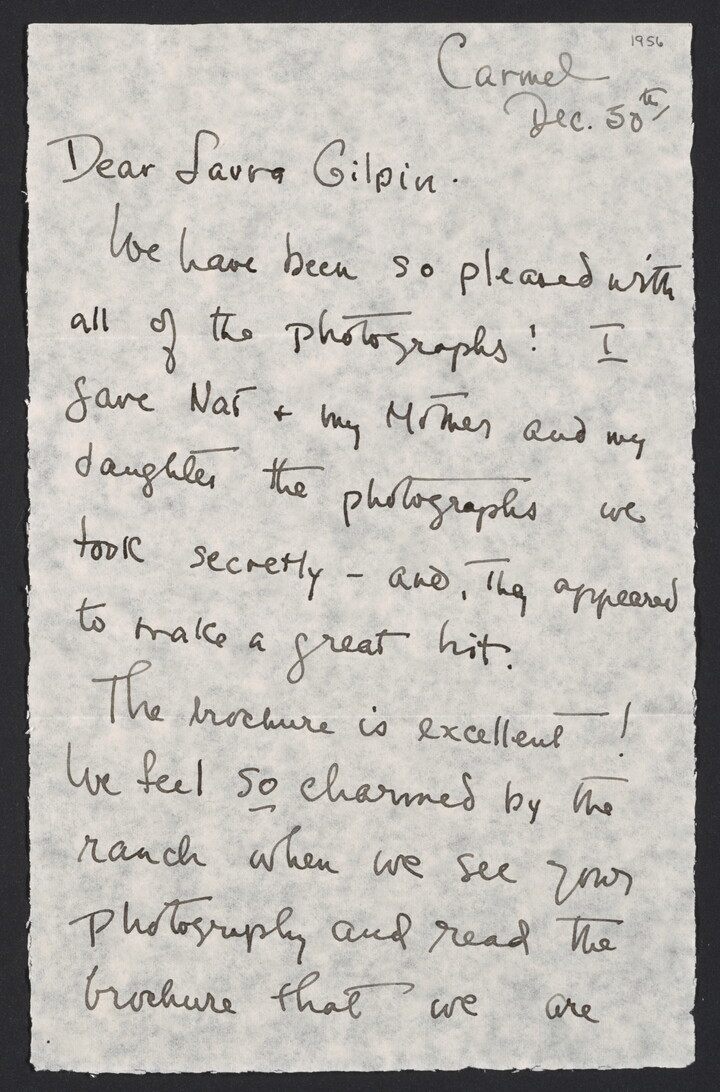 1956
Carmel
Dec. 30th
Dear Laura Gilpin.
We have been so pleased with
all of the photographs! I
gave Nat + my Mother and my
daughter the photographs we
took secretly - and, they appeared
to make a great hit.
The brochure is excellent!
We feel so charmed by the
ranch when we see your
photography and read the
brochure that we are